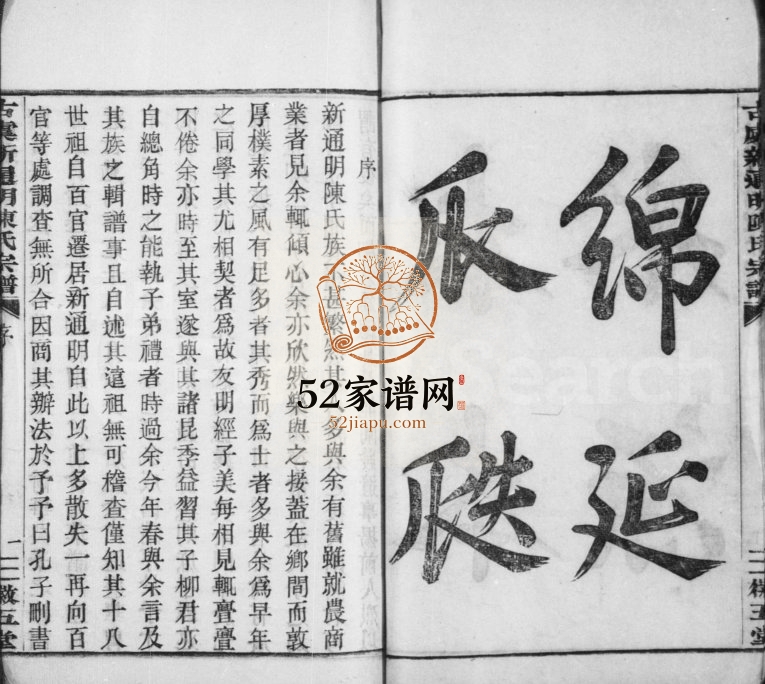 綿延
瓜瓞
古虞新通明陳氏宗譜
序
新通明陳氏族甚繁然其多與余有舊雖就農商
業者見余輒傾心余亦欣然樂與之接蓋在鄉間而敦
厚樸素之風有足多者其秀而爲士者多與余爲早年
之同學其尤相契者爲故友明經子美每相見輒亹亹
不倦余亦時至其室遂與其諸昆季益習其子柳君亦
自總角時之能執子弟禮者時過余今年春與余言及
其族之輯譜事且自述其遠祖無可稽查僅知其十八
世祖自百官遷居新通明自此以上多散失一再向百
官等處調查無所合因商其辦法於予予曰孔子刪書
古虞新通明陳氏宗譜
序
五堂
52家谱网
52jiapu.com